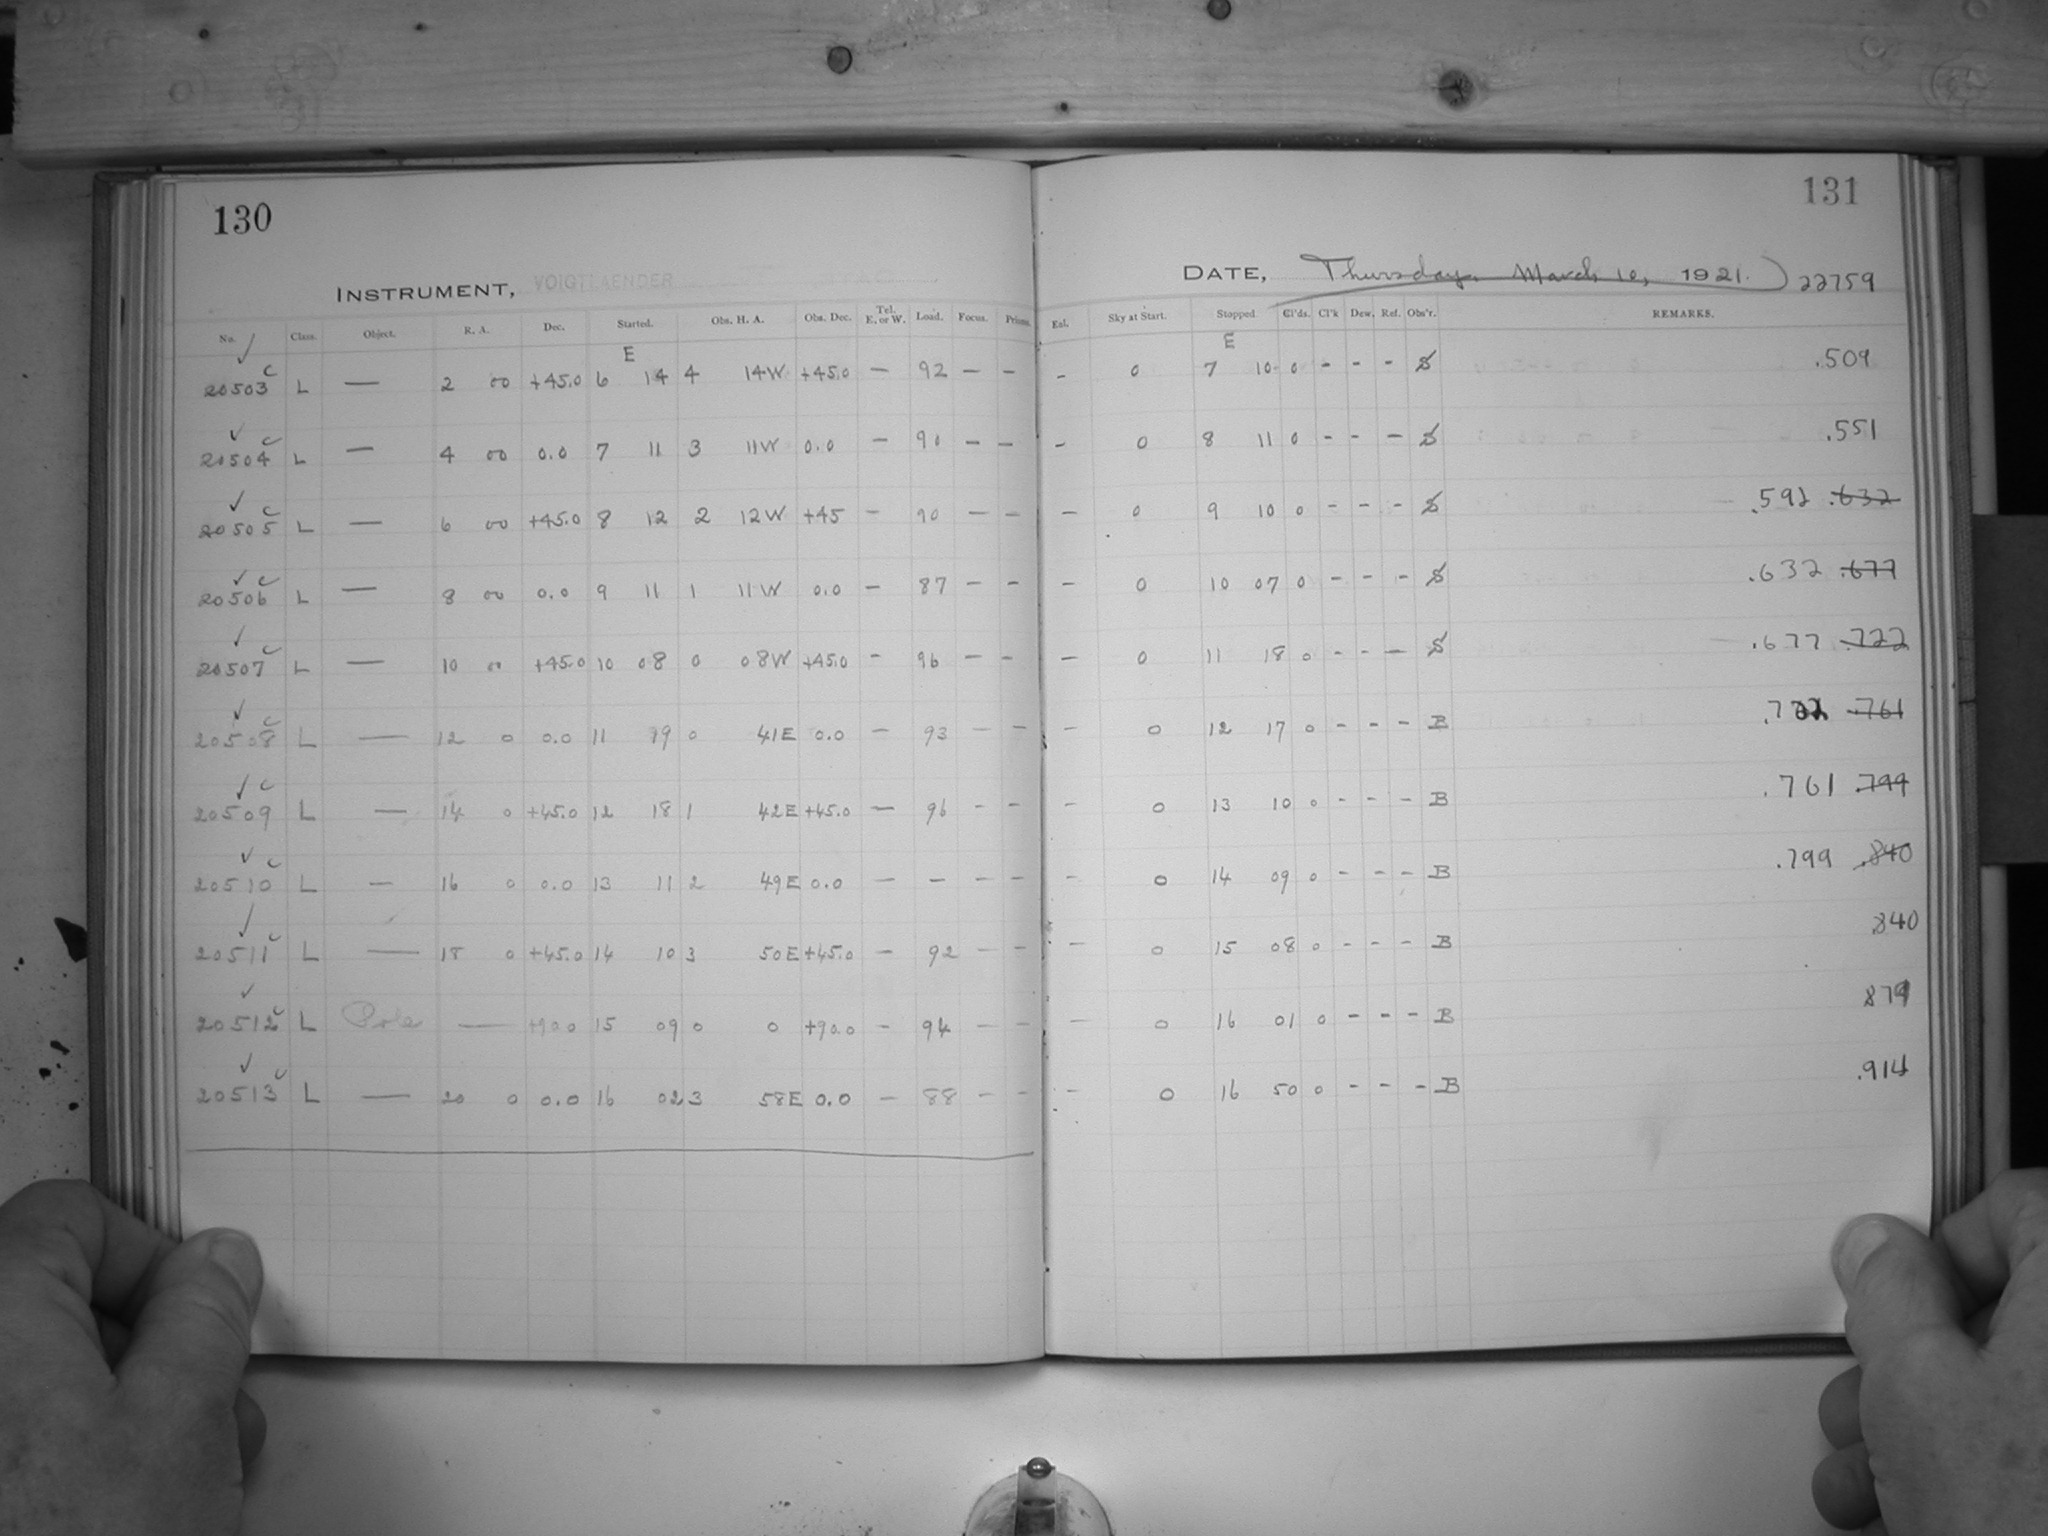 130
INSTRUMENT, VOIGTLAENDER
No. Class. Object. R. A. Dec. Started. Obs. H. A. Obs. Dec. Tel. E. or W. Load. Focus. Prisms.
E
✓ 20503 c L — 2 00 +45.0 6 14 4 14W +45.0 — 92 — —
✓ 20504 c L — 4 00 0.0 7 11 3 11W 0.0 — 90 — —
✓ 20505 c L — 6 00 +45.0 8 12 2 12W +45 — 90 — —
✓ 20506 c L — 8 00 0.0 9 11 1 11W 0.0 — 87 — —
✓ 20507 c L — 10 00 +45.0 10 08 0 08W +45.0 — 96 — —
✓ 20508 c L — 12 0 0.0 11 19 0 41E 0.0 — 93 — —
✓ 20509 c L — 14 0 +45.0 12 18 1 42E +45.0 — 96 — —
✓ 20510 c L — 16 0 0.0 13 11 2 49E 0.0 — — — —
✓ 20511 c L — 18 0 +45.0 14 10 3 50E +45.0 — 92 — —
✓ 20512 c L Pole — +90.0 15 09 0 0 +90.0 — 94 — —
✓ 20513 c L — 20 0 0.0 16 02 3 58E 0.0 — 88 — —
131
DATE, Thursday, March 10, 1921. 22759
Exl. Sky at Start. Stopped. Cl'ds. Cl'k Dew. Ref. Obs'r. REMARKS.
E
— 0 7 10 0 - - - S .509
— 0 8 11 0 - - - S .551
— 0 9 10 0 - - - S .592 .632
— 0 10 07 0 - - - S .632 .677
— 0 11 18 0 - - - S .677 .722
— 0 12 17 0 - - - B .722 .761
— 0 13 10 0 - - - B .761 .799
— 0 14 09 0 - - - B .799 .840
— 0 15 08 0 - - - B .840
— 0 16 01 0 - - - B 879
— 0 16 50 0 - - - B .914